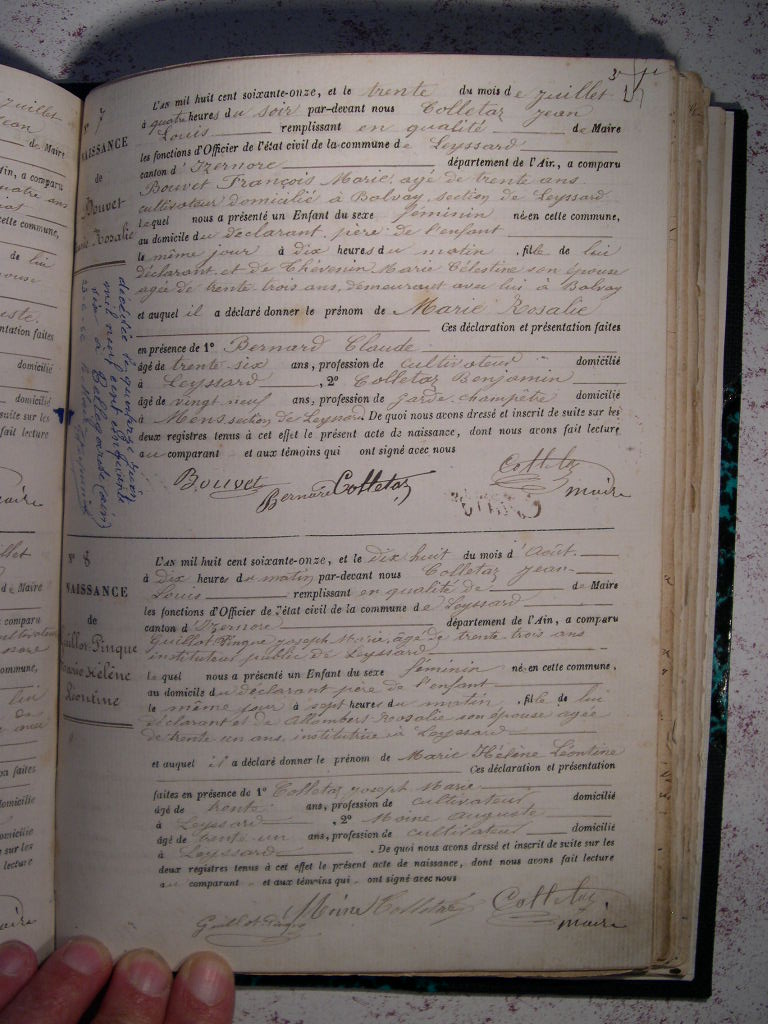 N° 7
NAISSANCE
de
Bouvet
Marie Rosalie
L'AN mil huit cent soixante-onze, et le trente du mois de Juillet
à quatre heures du soir par-devant nous Colletaz Jean
Louis remplissant en qualité de Maire
les fonctions d'Officier de l'état civil de la commune de Leyssard
canton d'Izernore département de l'Ain, a comparu
Bouvet François Marie, agé de trente ans
cultivateur domicilié à Bolvay, section de Leyssard
Lequel nous a présenté un Enfant du sexe féminin né en cette commune,
au domicile du déclarant, père de l'enfant
le même jour à dix heures du matin, fille de lui
déclarant et de Thévenin Marie Célestine son épouse
agée de trente trois ans, demeurant avec lui à Bolvay
et auquel il a déclaré donner le prénom de Marie Rosalie
Ces déclaration et présentation faites
en présence de 1° Bernard Claude
âgé de trente six ans, profession de cultivateur domicilié
à Leyssard, 2° Colletaz Benjamin
âgé de vingt neuf ans, profession de garde champêtre domicilié
à Mens section de Leyssard De quoi nous avons dressé et inscrit de suite sur les
deux registres tenus à cet effet le présent acte de naissance, dont nous avons fait lecture
au comparant et aux témoins qui ont signé avec nous
Bouvet Bernard Colletaz Colletaz
maire
décédée le quinze juin
mil neuf cent cinquante
six à Bellegarde (Ain)
N° 8
NAISSANCE
de
Guillot-Pingue
Marie Hélène
Léontine
L'AN mil huit cent soixante-onze, et le dix huit du mois d'Août
à dix heures du matin par-devant nous Colletaz Jean-
Louis remplissant en qualité de Maire
les fonctions d'Officier de l'état civil de la commune de Leyssard
canton d'Izernore département de l'Ain, a comparu
Guillot Pingue Joseph Marie, âgé de trente-trois ans
instituteur public à Leyssard
Lequel nous a présenté un Enfant du sexe féminin né en cette commune,
au domicile du déclarant père de l'enfant
le même jour à sept heures du matin, fille de lui
déclarant et de Allombert Rosalie son épouse agée
de trente un ans, institutrice à Leyssard
et auquel il a déclaré donner le prénom de Marie Hélène Léontine
Ces déclaration et présentation
faites en présence de 1° Colletaz Joseph Marie
âgé de trente ans, profession de cultivateur domicilié
à Leyssard, 2° Moine Auguste
âgé de trente un ans, profession de cultivateur domicilié
à Leyssard. De quoi nous avons dressé et inscrit de suite sur les
deux registres tenus à cet effet le présent acte de naissance, dont nous avons fait lecture
au comparant et aux témoins qui ont signé avec nous
Guillot Pingue Moine Colletaz Colletaz
maire